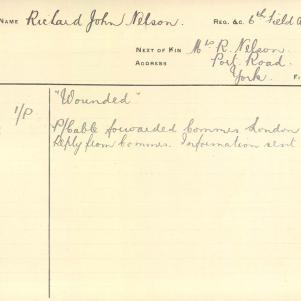 NAME Richard John Nelson. REG. &C. 6th Field A
NEXT OF KIN Mrs R. Nelson.
ADDRESS Port Road.
York. F
1/P "Wounded"
P/Cable forwarded Commrs London
Reply from Commrs. Information sent